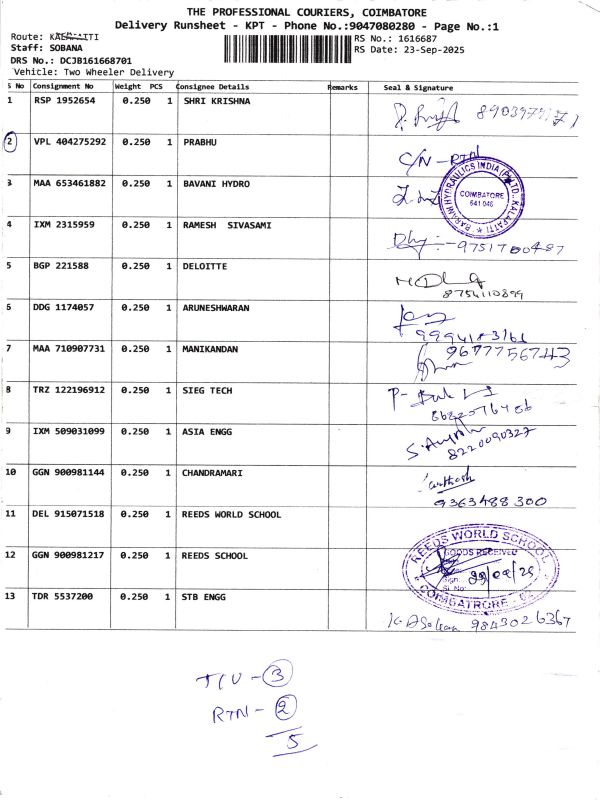 THE PROFESSIONAL COURIERS, COIMBATORE
Delivery Runsheet - KPT - Phone No.:9047080280 - Page No.:1
Route: KALAPATTI
RS No.: 1616687
Staff: SOBANA
RS Date: 23-Sep-2025
DRS No.: DCJB161668701
Vehicle: Two Wheeler Delivery
S No Consignment No Weight PCS Consignee Details Remarks Seal & Signature
1 RSP 1952654 0.250 1 SHRI KRISHNA
2 VPL 404275292 0.250 1 PRABHU C/N - RTN
3 MAA 653461882 0.250 1 BAVANI HYDRO
COIMBATORE
641 048
4 IXM 2315959 0.250 1 RAMESH SIVASAMI 9751700487
5 BGP 221588 0.250 1 DELOITTE
8754110899
6 DDG 1174057 0.250 1 ARUNESHWARAN
9994183161
7 MAA 710907731 0.250 1 MANIKANDAN 9677756743
8 TRZ 122196912 0.250 1 SIEG TECH
9 IXM 509031099 0.250 1 ASIA ENGG
8220090327
10 GGN 900981144 0.250 1 CHANDRAMARI
9363488300
11 DEL 915071518 0.250 1 REEDS WORLD SCHOOL
REEDS WORLD SCHOOL
GOODS RECEIVED
12 GGN 900981217 0.250 1 REEDS SCHOOL
13 TDR 5537200 0.250 1 STB ENGG
9843026367
RTN - 2
5